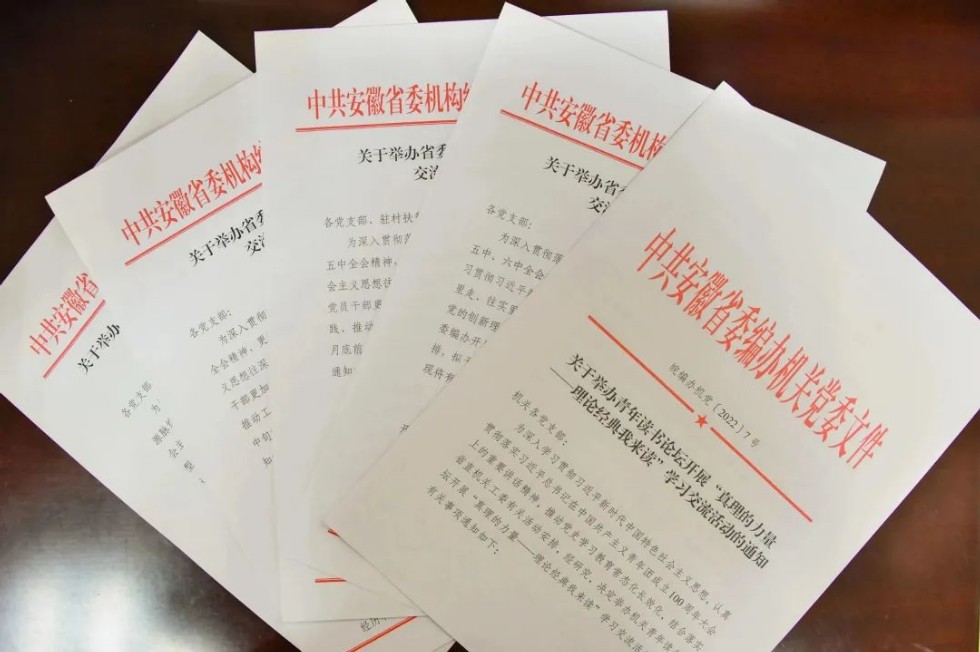 中共安徽省
关于举办
各党支部
为
会主
中共安徽省委机构
关于举办省
交流
各党支部：
为深入贯彻
全会精神，更
义思想往深
干部更加
推动工
中旬
知
中共安徽省委机构
关于举办省委
交流
各党支部、驻村扶
为深入贯彻
五中全会精神，
会主义思想往
党员干部更
践、推动
月底前
通知
经济
中共安徽省委机构
关于举办省
交流
各党支部：
为深入贯彻落
五中、六中全会
习贯彻习近平
里走、往实
党的创新理
委编办开
持，拟
现将有
中共安徽省委编办机关党委文件
皖编办机党〔2022〕7号
关于举办青年读书论坛开展“真理的力量
——理论经典我来读”学习交流活动的通知
机关各党支部：
为深入学习贯彻习近平新时代中国特色社会主义思想，认真
贯彻落实习近平总书记在中国共产主义青年团成立100周年大会
上的重要讲话精神，推动党史学习教育常态化长效化，结合落实
省直机关工委有关活动安排，经研究，决定举办机关青年读书论
坛开展“真理的力量——理论经典我来读”学习交流活
有关事项通知如下：